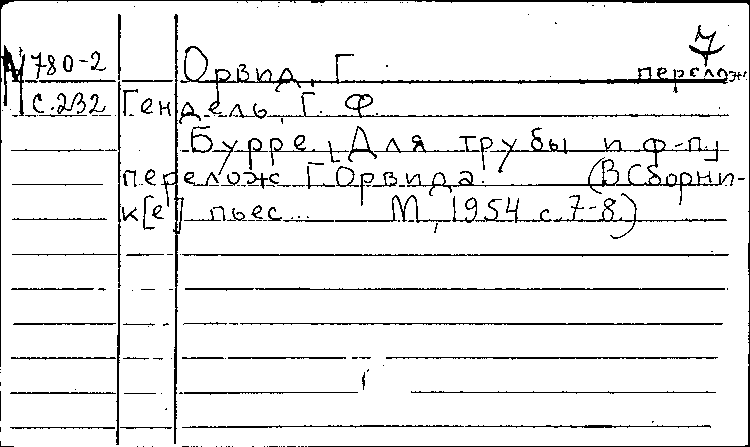 7
N 780-2 Орвид, Г. перелож
с.232 Гендель, Г. Ф.
Бурре. [Для трубы и ф-п.]
перелож Г. Орвида. (В Сборни-
к[е] пьес... М, 1954 с. 7-8.)